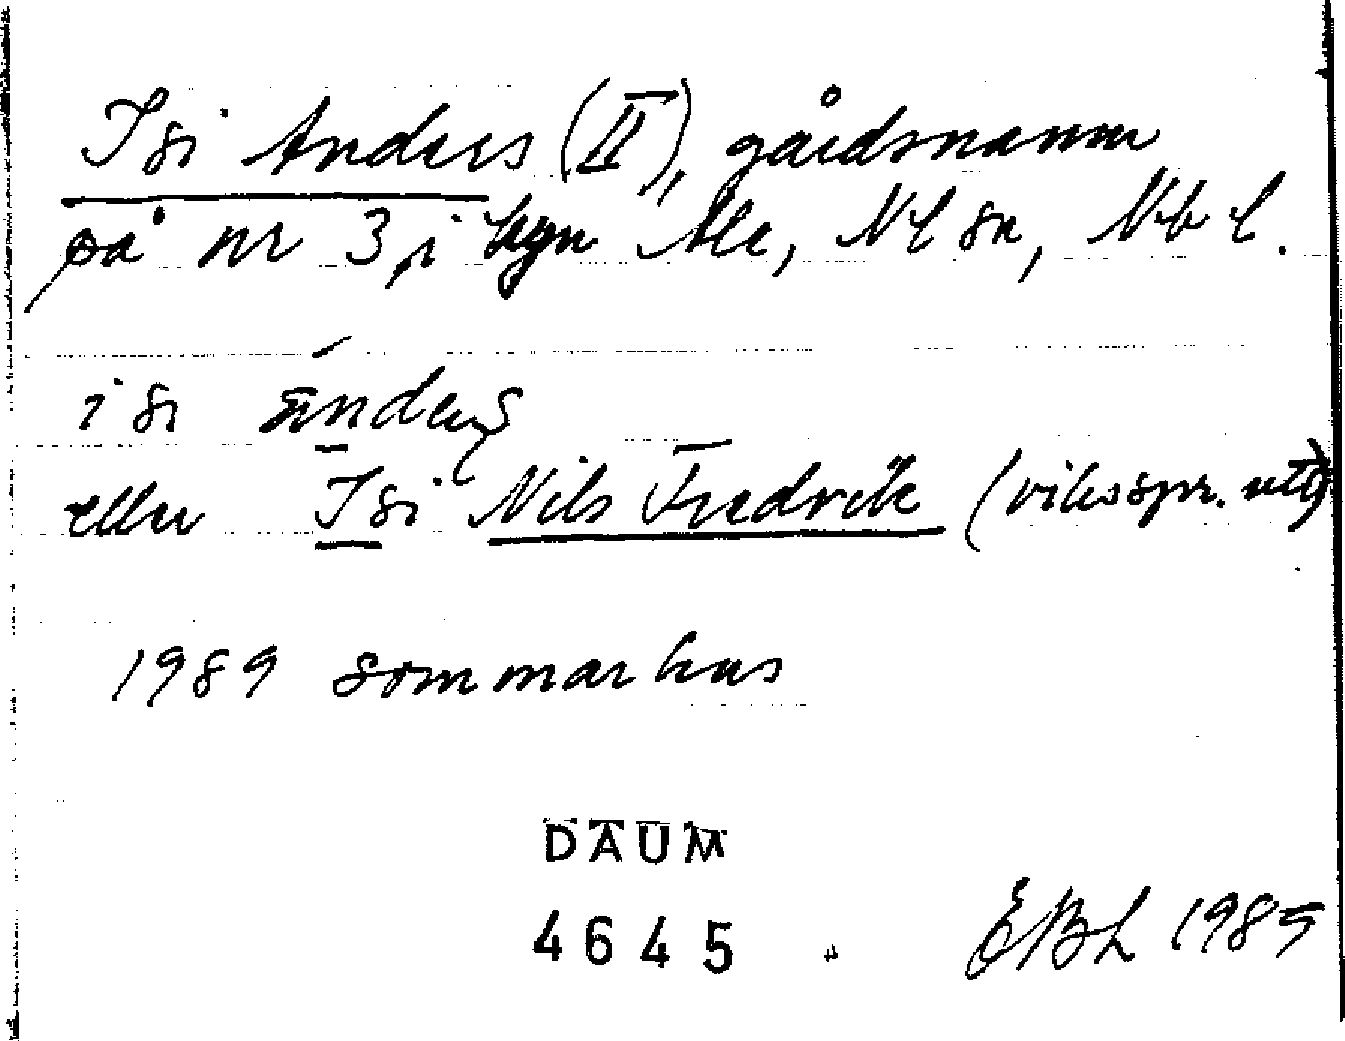 Isi Anders (II), gårdsmann
på nr 3, i byn Ale, Nl sn, Nb l.
isi ànders
eller Isi Nils Fredrik (riksspr. utt)
1989 sommarhus
DAUM
4645
EBL 1989